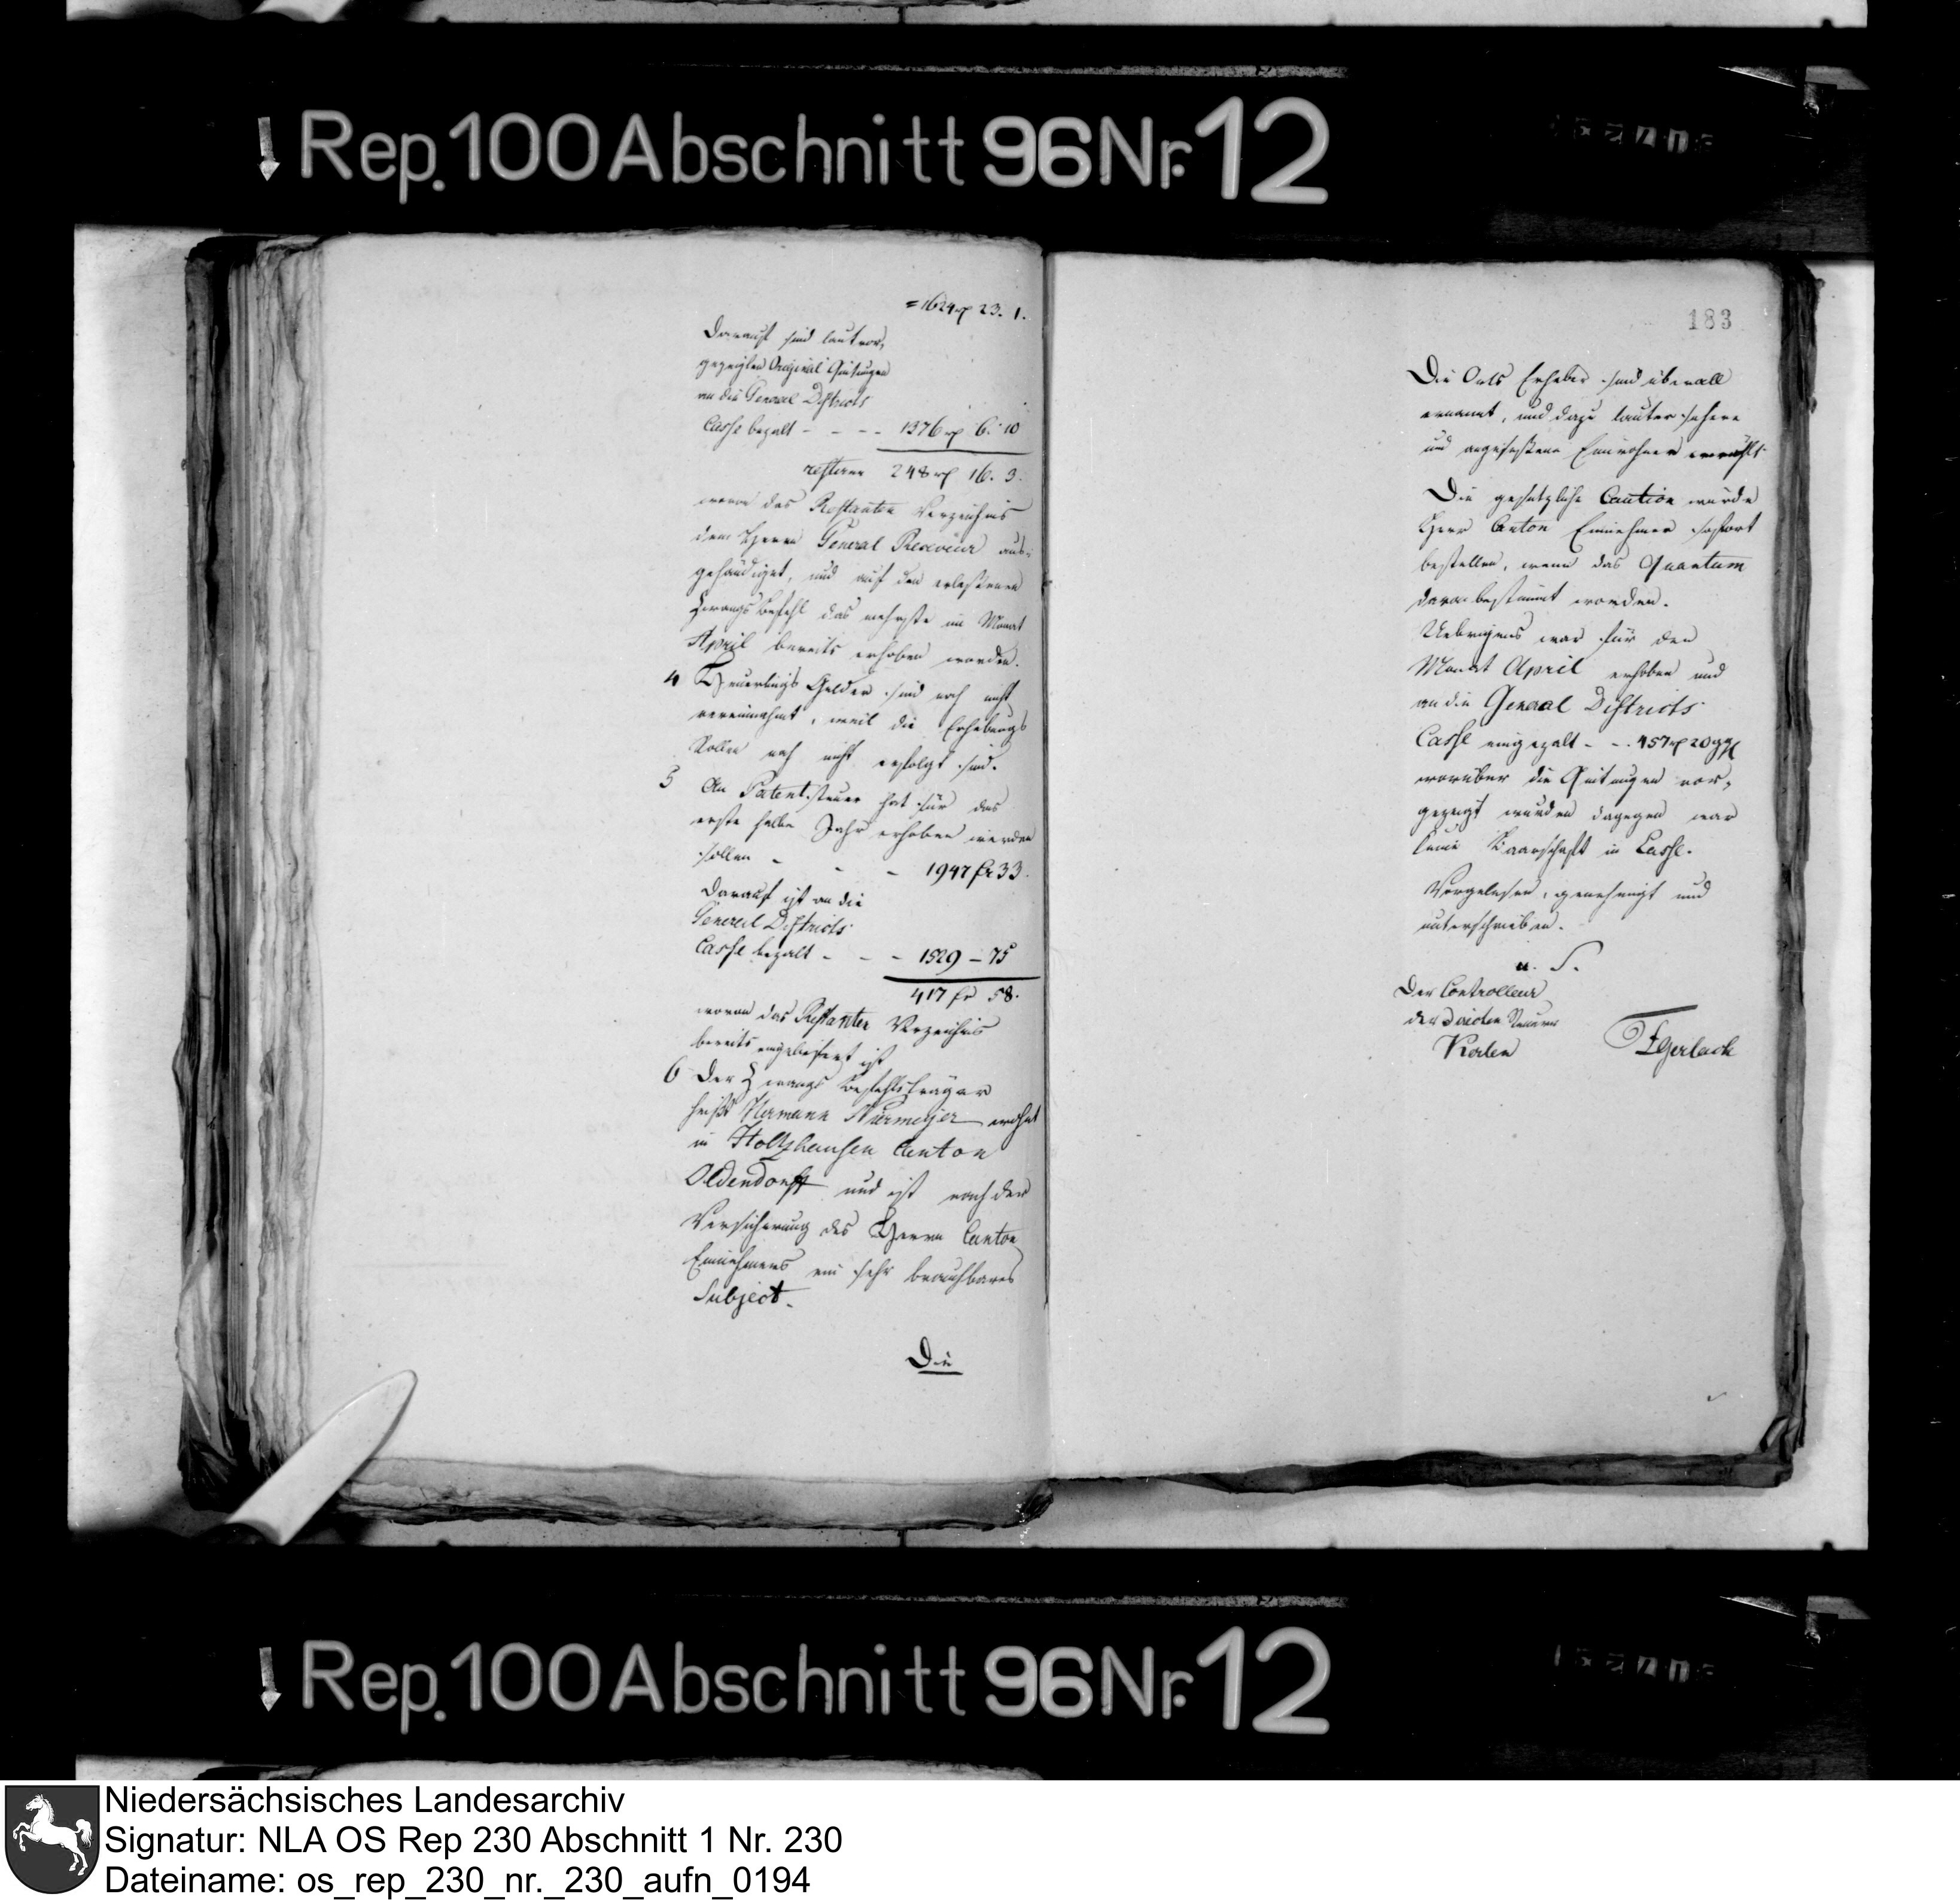 Rep. 100 Abschnitt 96 Nr. 12
= 1624 rp 23. 1.
Darauf sind laut vor,
gezeigten Original Quitungen
an die General Districts
Casse bezalt - - - - 1376 rp 6. 10
restiren 248 rp 16. 3.
wovon das Restanten Verzeichnis
dem Herrn General Receveur aus-
gehändiget, und auf den erlassenen
Zwangs Befehl das mehrste im Monat
April bereits erhoben worden.
4 Heuerlings Gelder sind noch nicht
vereinnahmt, weil die Erhebungs
Rollen noch nicht erfolgt sind.
5 An Patentsteuer hat für das
erste halbe Jahr erhoben werden
sollen - - - 1947 fr 33.
Darauf ist an die
General Districts
Casse bezalt - - - 1529 - 75
417 fr 58.
wovon das Restanten Verzeichnis
bereits eingeliefert ist
6 Der Zwangs Befehlsträger
heißt Hermann Nürmeyer wohnt
in Holtzhausen Canton
Oldendorff und ist nach der
Versicherung des Herrn Canton
Einnehmers ein sehr brauchbares
Subject.
Die
183
Die Orts Erheber sind überall
ernannt, und dazu lauter sichere
und angesessene Einwohner erwählt.
Die gesetzliche Caution würde
Herr Canton Einnehmer sofort
bestellen, wenn das Quantum
davon bestimmt worden.
Uebrigens war für den
Monat April erhoben und
an die General Districts
Casse eingezalt - - . 457 rp 20 ggr
worüber die Quitungen vor,
gezeigt wurden dagegen war
keine Baarschaft in Casse.
Vorgelesen, genehmigt und
unterschrieben.
u. S.
Der Controlleur
der directen Steuern
Gerlach
Rep. 100 Abschnitt 96 Nr. 12
Niedersächsisches Landesarchiv
Signatur: NLA OS Rep 230 Abschnitt 1 Nr. 230
Dateiname: os_rep_230_nr._230_aufn_0194